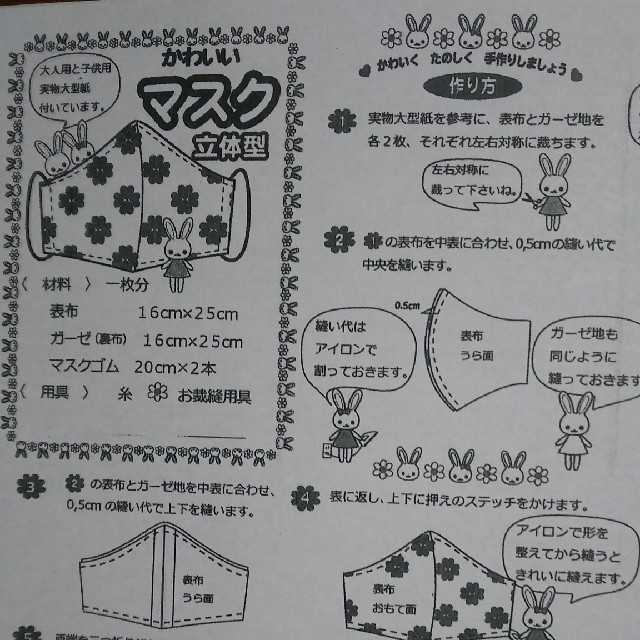 かわいい
マスク
立体型
大人用と子供用
実物大型紙
付いています。
〈 材料 〉 一枚分
表布 16cm×25cm
ガーゼ(裏布) 16cm×25cm
マスクゴム 20cm×2本
〈 用具 〉 糸 お裁縫用具
かわいく たのしく 手作りしましょう
作り方
1 実物大型紙を参考に、表布とガーゼ地を
各2枚、それぞれ左右対称に裁ちます。
左右対称に
裁って下さいね。
2 1の表布を中表に合わせ、0,5cmの縫い代で
中央を縫います。
0.5cm
縫い代は
アイロンで
割っておきます。
表布
うら面
ガーゼ地も
同じように
縫っておきます
3 2の表布とガーゼ地を中表に合わせ、
0,5cmの縫い代で上下を縫います。
表布
うら面
4 表に返し、上下に押えのステッチをかけます。
アイロンで形を
整えてから縫うと
きれいに縫えます。
表布
おもて面